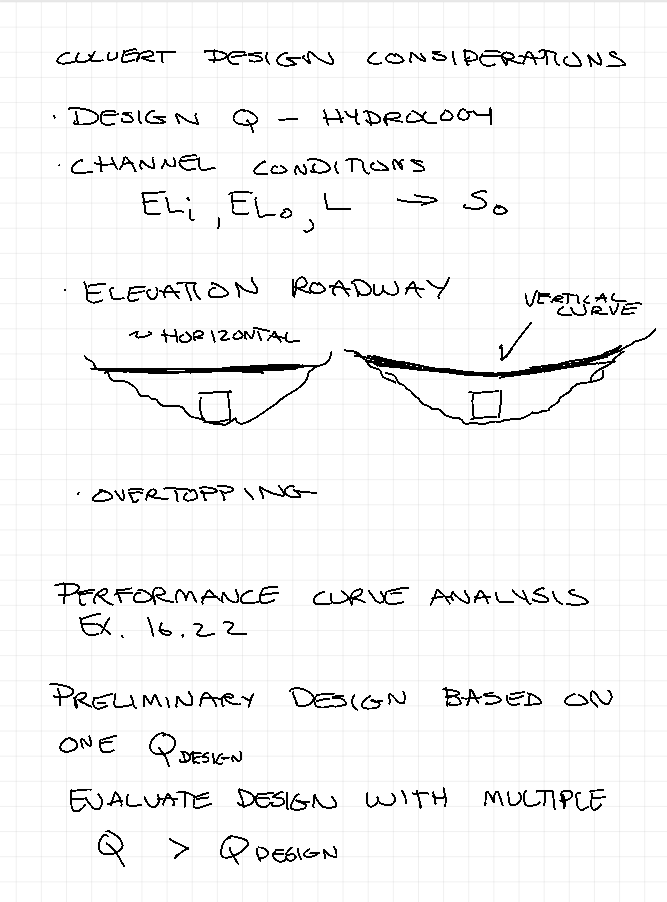 CULVERT DESIGN CONSIDERATIONS
· DESIGN Q — HYDROLOGY
· CHANNEL CONDITIONS
ELi, ELo, L → So
· ELEVATION ROADWAY
~ HORIZONTAL
VERTICAL
CURVE
· OVERTOPPING
PERFORMANCE CURVE ANALYSIS
EX. 16.2.2
PRELIMINARY DESIGN BASED ON
ONE QDESIGN
EVALUATE DESIGN WITH MULTIPLE
Q > QDESIGN